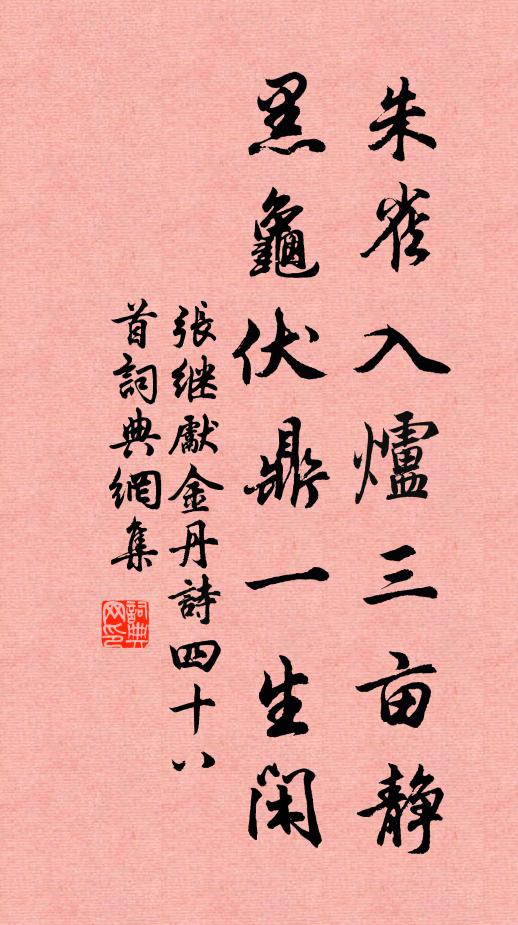 朱雀入爐三亩静
黑龜伏鼎一生闲
張继獻金丹詩四十八
首詞典網集
詞典網印